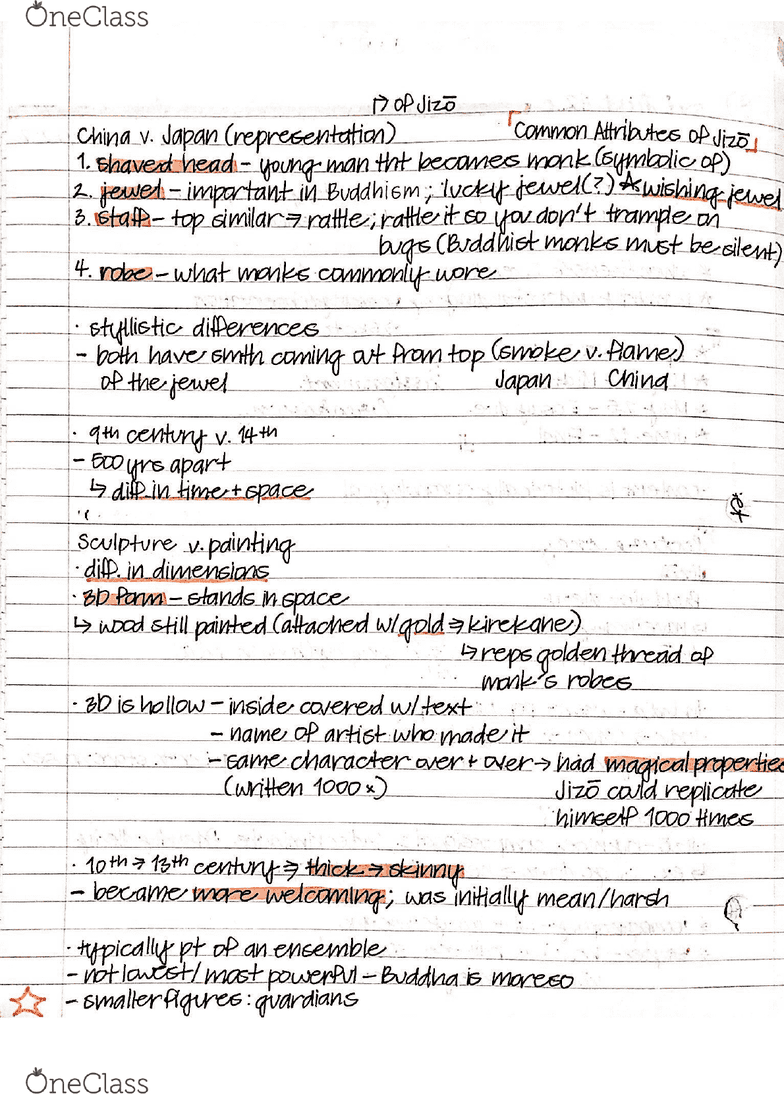 OneClass
↱ of Jizō
China v. Japan (representation) Common Attributes of Jizō
1. shaved head - young man tht becomes monk (symbolic of)
2. jewel - important in Buddhism; lucky jewel(?) ☆ wishing jewel
3. staff - top similar → rattle; rattle it so you don't trample on
bugs (Buddhist monks must be silent)
4. robe - what monks commonly wore
· styllistic differences
- both have smth coming out from top (smoke v. flame)
of the jewel Japan China
· 9th century v. 14th
- 500 yrs apart
↳ diff. in time + space
Sculpture v. painting
· diff. in dimensions
· 3D form - stands in space
↳ wood still painted (attached w/ gold → kirekane)
↳ reps golden thread of
monk's robes
· 3D is hollow - inside covered w/ text
- name of artist who made it
- same character over + over → had magical properties
(written 1000 x) Jizō could replicate
himself 1000 times
· 10th → 13th century → thick → skinny
- became more welcoming; was initially mean/harsh
· typically pt of an ensemble
- not lowest/most powerful - Buddha is moreso
☆ - smaller figures: guardians
OneClass